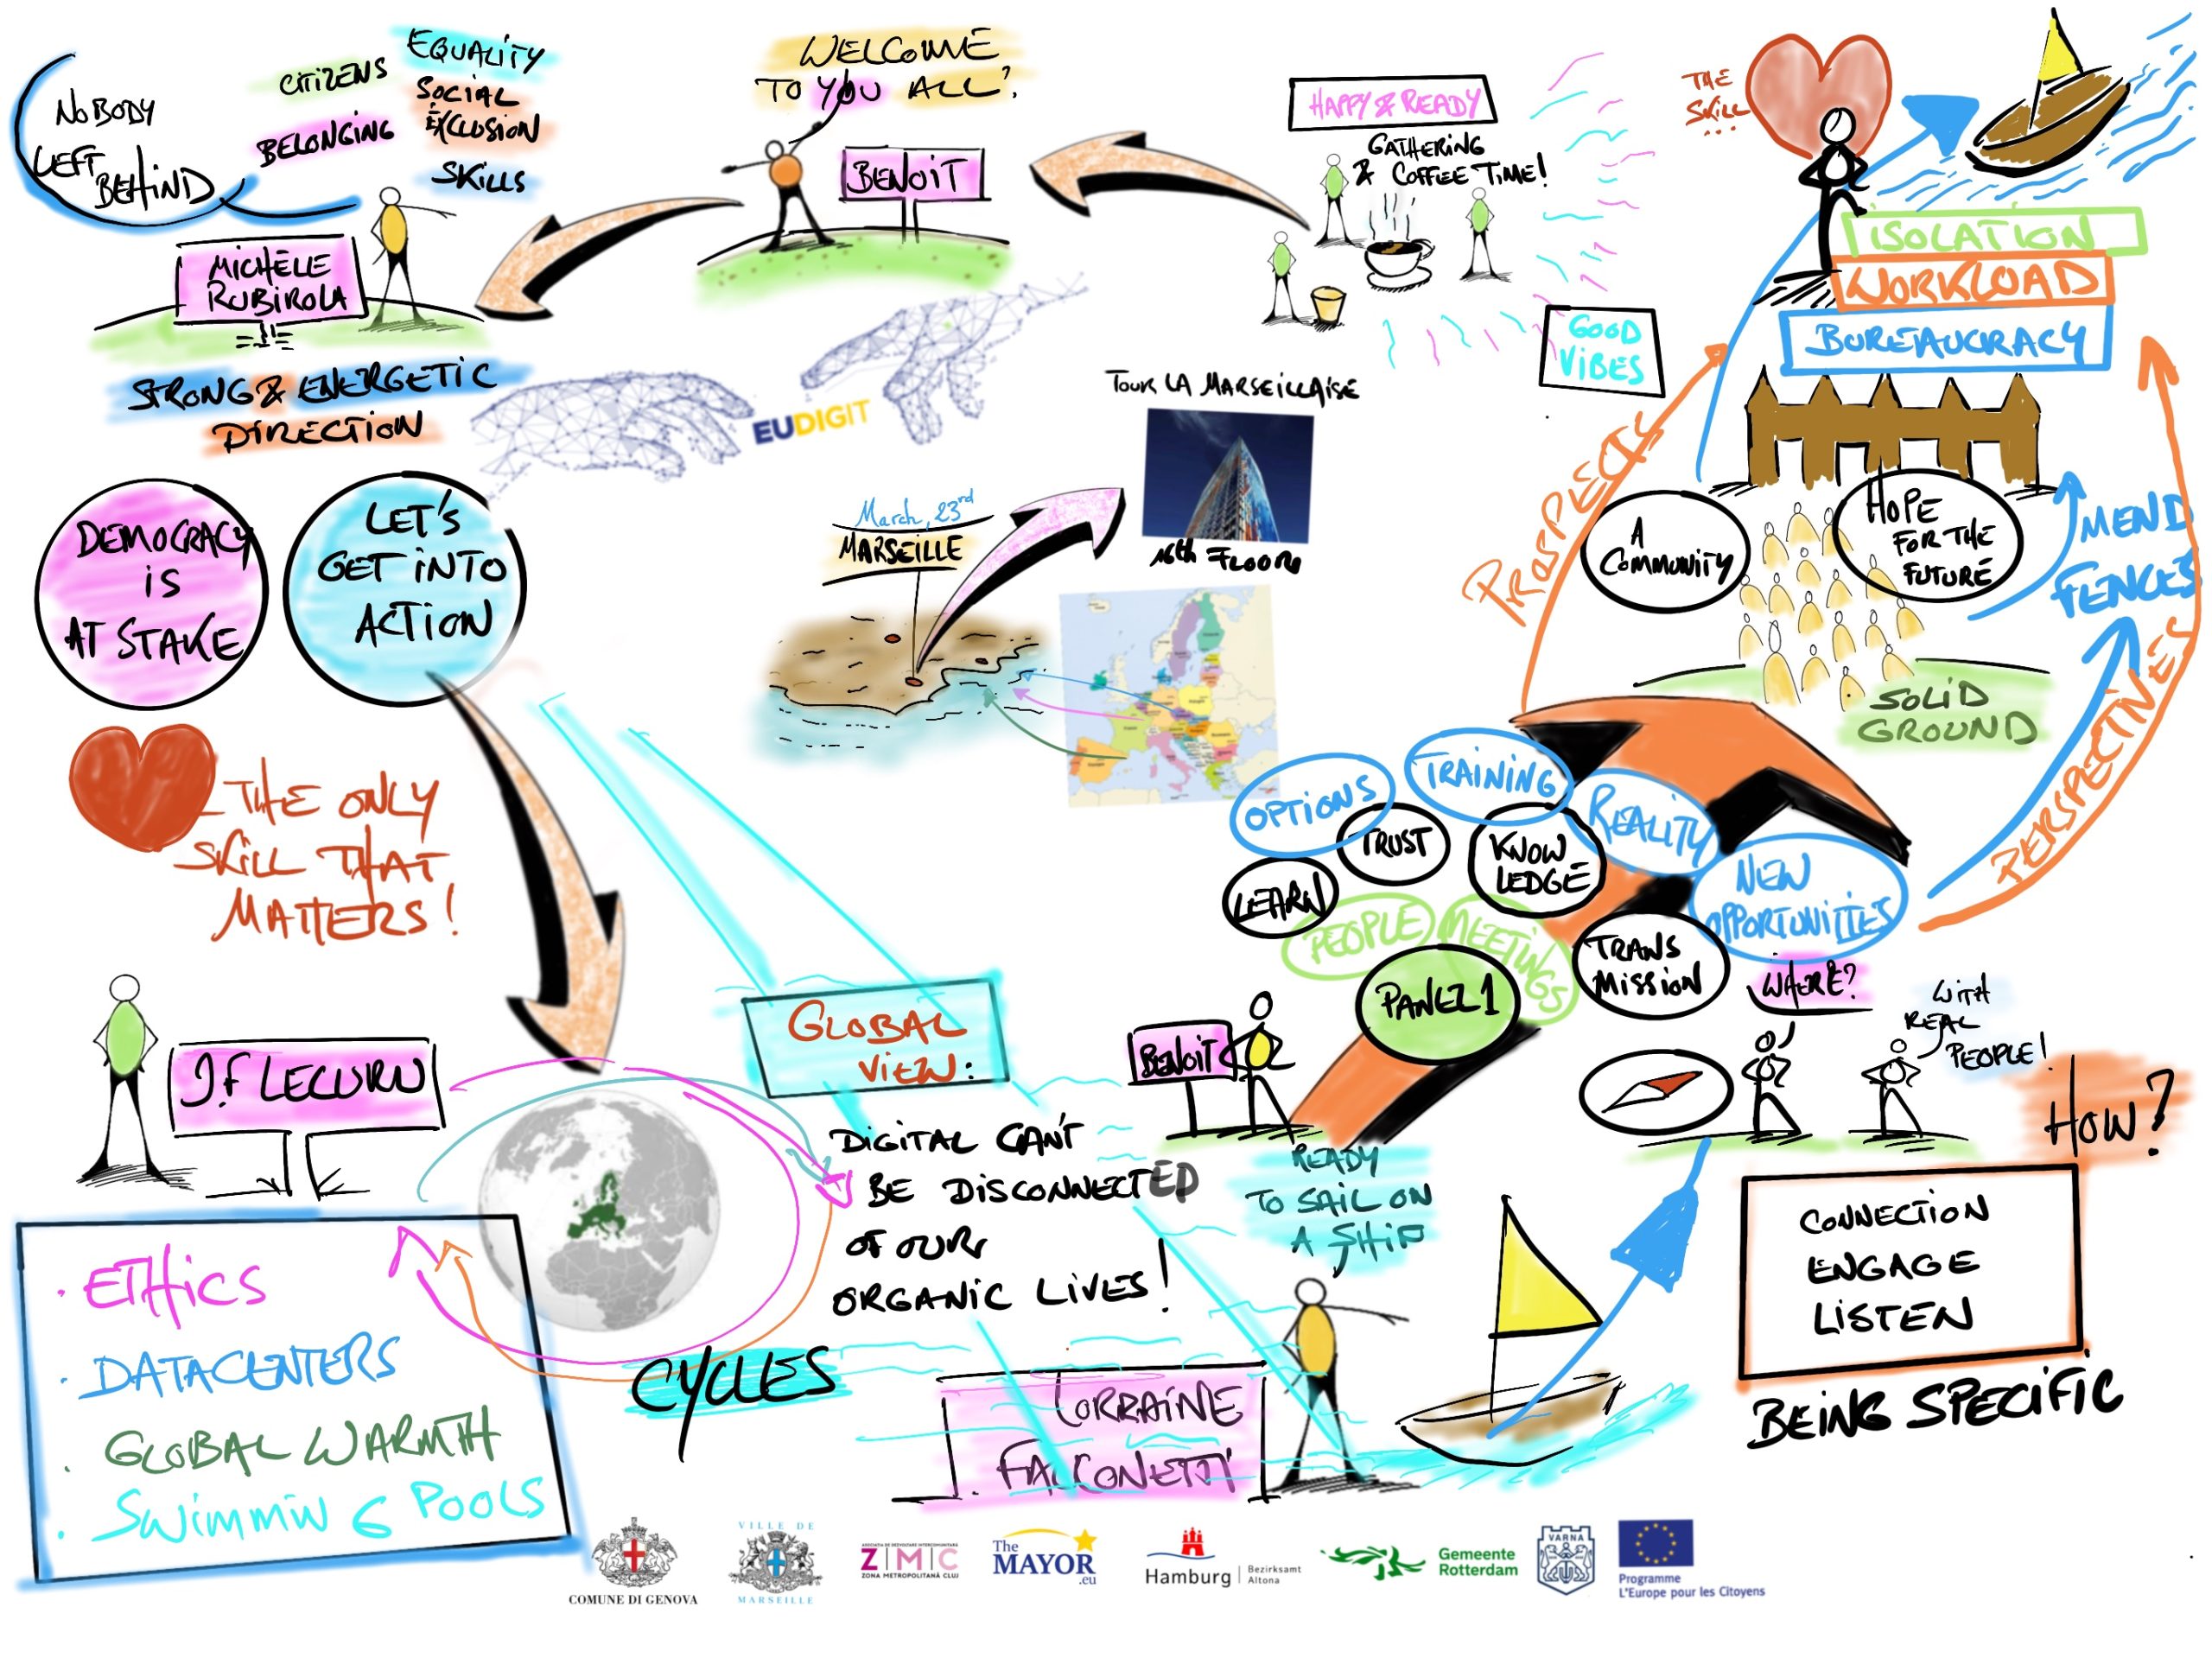 NOBODY
LEFT
BEHIND
CITIZENS
BELONGING
EQUALITY
SOCIAL
EXCLUSION
SKILLS
MICHÈLE
RUBIROLA
STRONG & ENERGETIC
DIRECTION
WELCOME
TO YOU ALL!
BENOIT
HAPPY & READY
GATHERING
& COFFEE TIME!
GOOD
VIBES
EUDIGIT
TOUR LA MARSEILLAISE
16th FLOOR
March, 23rd
MARSEILLE
DEMOCRACY
IS
AT STAKE
LET'S
GET INTO
ACTION
THE ONLY
SKILL THAT
MATTERS!
J.F LECURU
ETHICS
DATACENTERS
GLOBAL WARMTH
SWIMMIN G POOLS
GLOBAL
VIEW:
DIGITAL CAN'T
BE DISCONNECTED
OF OUR
ORGANIC LIVES!
CYCLES
LORRAINE
FALCONETTI
READY
TO SAIL ON
A SHIP
BENOIT
PANEL 1
PEOPLE
MEETINGS
LEARN
TRUST
OPTIONS
TRAINING
KNOW
LEDGE
REALITY
NEW
OPPORTUNITIES
TRANS
MISSION
WHERE?
WITH
REAL
PEOPLE!
HOW?
CONNECTION
ENGAGE
LISTEN
BEING SPECIFIC
PERSPECTIVES
MEND
FENCES
SOLID
GROUND
A
COMMUNITY
HOPE
FOR THE
FUTURE
BUREAUCRACY
WORKLOAD
ISOLATION
THE
SKILL
...
COMUNE DI GENOVA
VILLE DE
MARSEILLE
ZMC
ZONA METROPOLITANĂ CLUJ
The
MAYOR
.eu
Hamburg
Bezirksamt
Altona
Gemeente
Rotterdam
VARNA
Programme
L'Europe pour les Citoyens